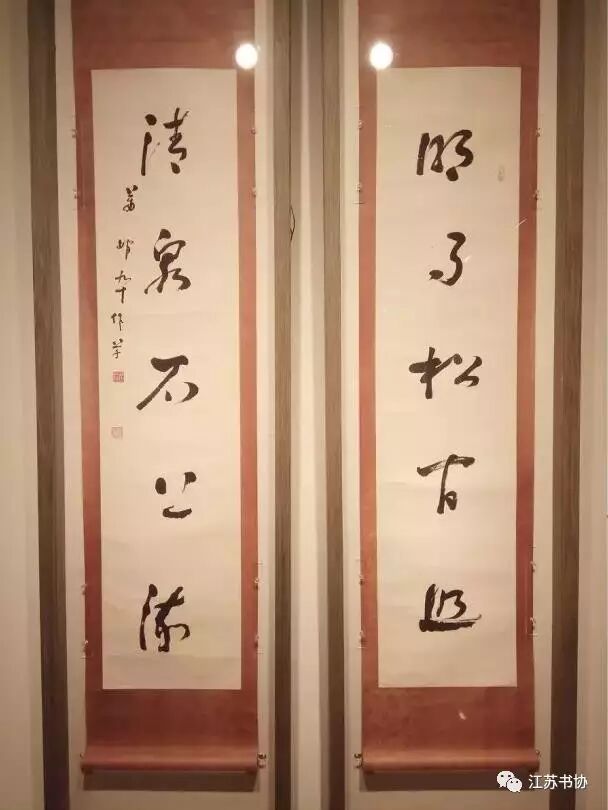 明月松間照
清泉石上流
九十作草
江苏书协